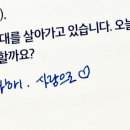 ).
대를 살아가고 있습니다. 오늘
할까요?
사랑으로 ♡